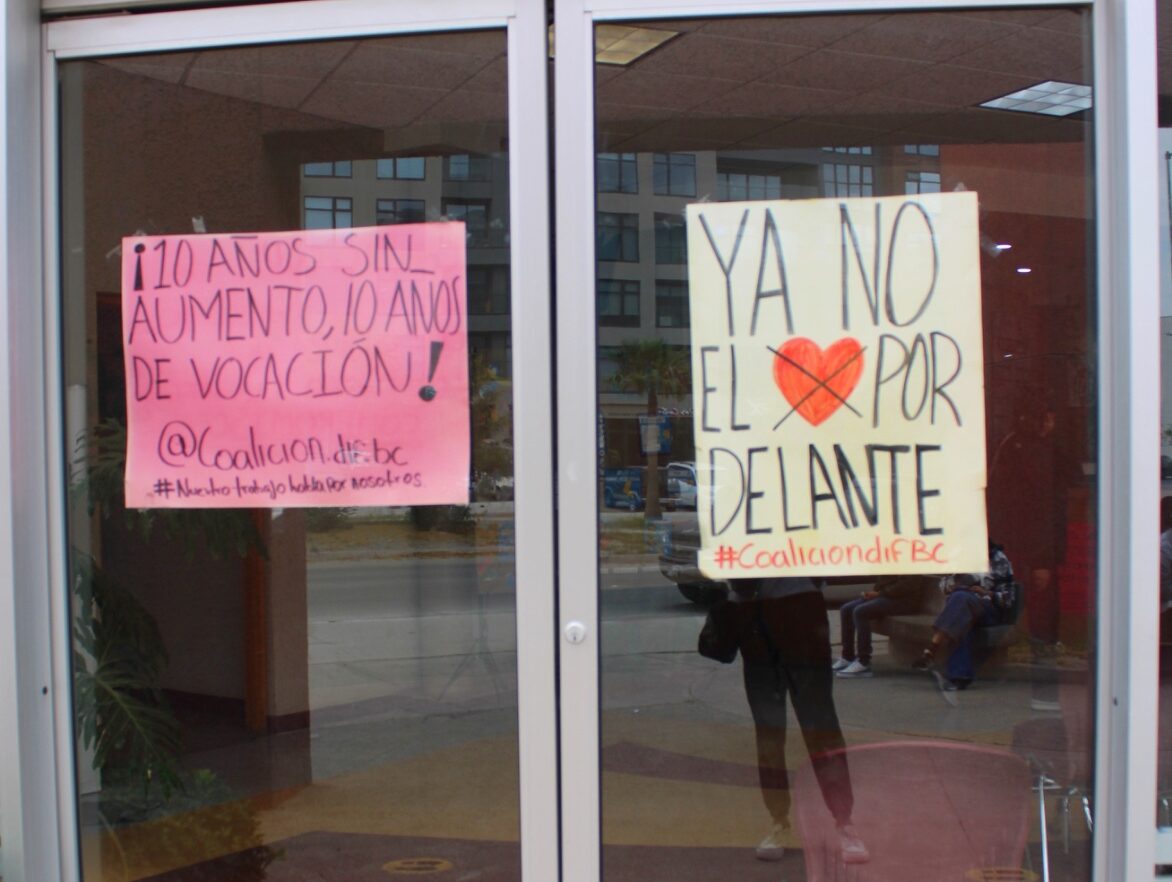 ¡10 AÑOS SIN
AUMENTO, 10 AÑOS
DE VOCACIÓN!
@Coalicion.dif.bc
#Nuestro trabajo habla por nosotros
YA NO
EL POR
DELANTE
#CoaliciondifBC